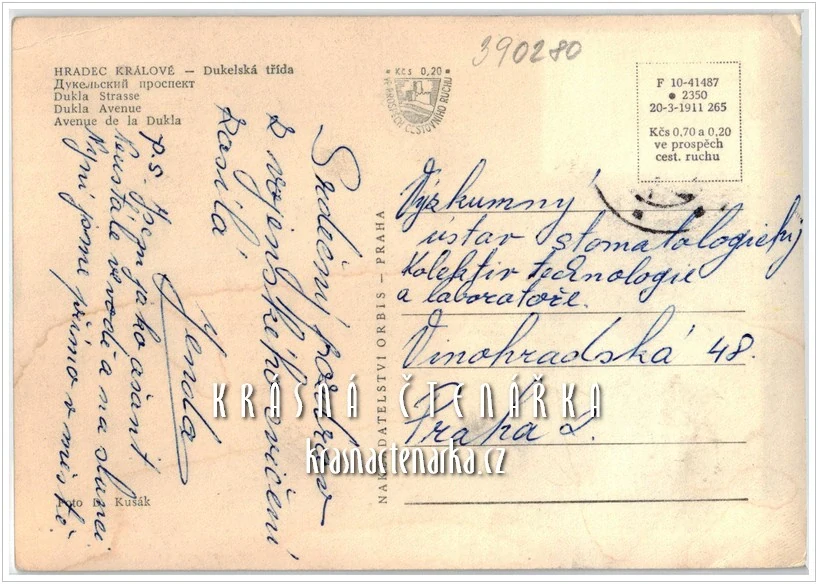 390280
HRADEC KRÁLOVÉ – Dukelská třída
Дукельский проспект
Dukla Strasse
Dukla Avenue
Avenue de la Dukla
Kčs 0,20
VE PROSPĚCH CESTOVNÍHO RUCHU
F 10-41487
2350
20-3-1911 265
Kčs 0,70 a 0,20
ve prospěch
cest. ruchu
Srdeční pozdrav
z vojenského cvičení
zasílá
Jenda
P.S. Jsem jako
Neustále ve vodě a na slunci
Nyní jsme přímo v městě.
Výzkumný
ústav stomatologický
Kolektiv technologie
a laboratoře.
Vinohradská 48.
Praha 2.
NAKLADATELSTVÍ ORBIS – PRAHA
Foto D. Kušák
KRÁSNÁ ČTENÁŘKA
krasnactenarka.cz